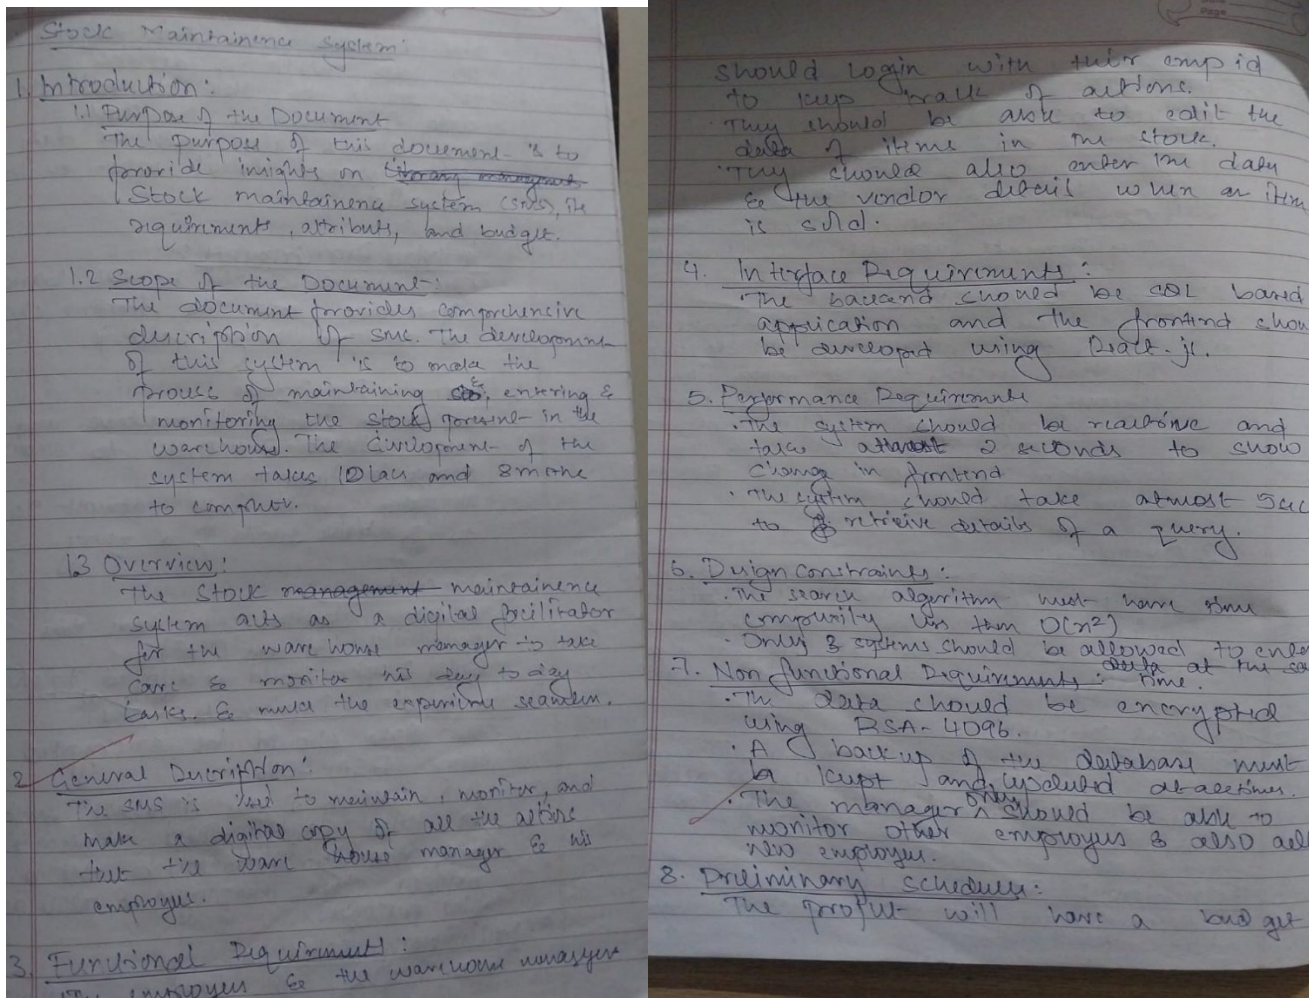 Stock Maintainence System:
1. Introduction:
1.1 Purpose of the Document
The purpose of this document is to
provide insights on
Stock maintainence system (SMS), its
requirements, attributes, and budget.
1.2 Scope of the Document:
The document provides comprehensive
description of SMS. The development
of this system is to make the
process of maintaining, entering &
monitoring the stock present in the
warehouse. The development of the
system takes 10 lacs and 8 months
to complete.
1.3 Overview:
The Stock management maintainence
system acts as a digital facilitator
for the ware house manager to take
care & monitor his day to day
tasks. & make the experience seamless.
2. General Description:
The SMS is used to maintain, monitor, and
make a digital copy of all the actions
that the ware house manager & his
employees.
3. Functional Requirements:
The employees & the warehouse managers
should login with their emp id
to keep track of actions.
· They should be able to edit the
data of items in the stock.
· They should also enter the data
& the vendor detail when an item
is sold.
4. Interface Requirements:
· The backend should be SQL based
application and the frontend shou
be developed using React.js.
5. Performance Requirements
· The system should be realtime and
take atmost 2 seconds to show
change in frontend
· The system should take atmost 5sec
to retrieive details of a query.
6. Design Constraints:
· The search algorithm must have time
complexity less than O(n²)
· Only 3 systems should be allowed to enter
data at the sa
time.
7. Non functional Requirements:
· The data should be encrypted
using RSA-4096.
· A backup of the database must
be kept and updated at all times.
· The manager only should be able to
monitor other employees & also add
new employees.
8. Preliminary Schedule:
The project will have a budget